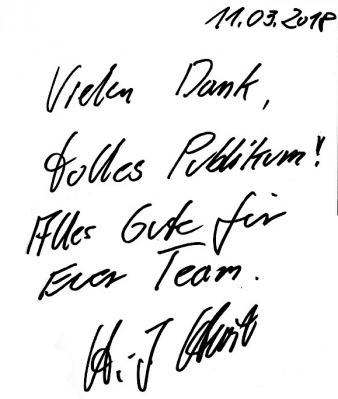 11.03.2018
Vielen Dank,
tolles Publikum!
Alles Gute für
Euer Team.